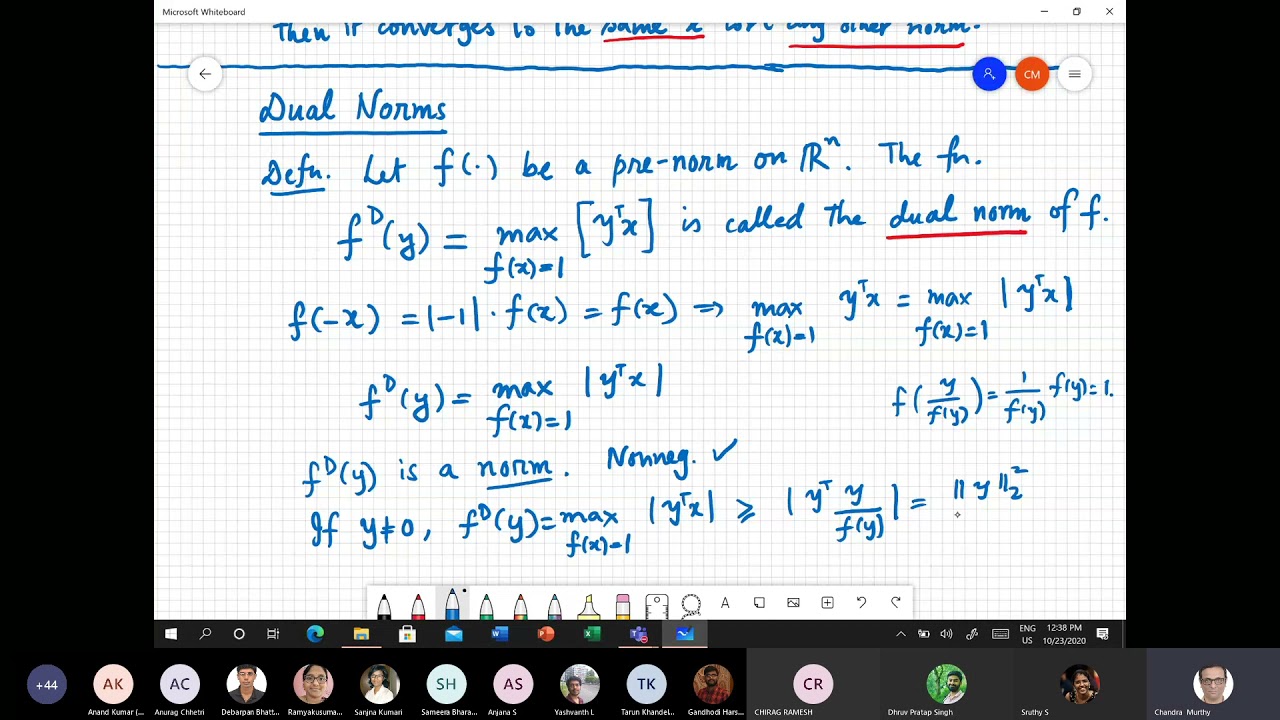 Microsoft Whiteboard
then it converges to the same x w.r.t any other norm.
CM
Dual Norms
Defn. Let f(·) be a pre-norm on ℝⁿ. The fn.
f^D(y) = max_{f(x)=1} [yᵀx] is called the dual norm of f.
f(-x) = |-1| · f(x) = f(x) ⇒ max_{f(x)=1} yᵀx = max_{f(x)=1} |yᵀx|
f^D(y) = max_{f(x)=1} |yᵀx|
f(y/f(y)) = 1/f(y) f(y) = 1.
f^D(y) is a norm. Nonneg. ✓
If y≠0, f^D(y) = max_{f(x)=1} |yᵀx| ⩾ |yᵀ y/f(y)| = ||y||₂²
A
ENG
US
12:38 PM
10/23/2020
+44
AK
AC
SH
AS
TK
CR
Anand Kumar (...
Anurag Chhetri
Debarpan Bhatt...
Ramyakusuma...
Sanjna Kumari
Sameera Bhara...
Anjana S
Yashvanth L
Tarun Khandel...
Gandhodi Hars...
CHIRAG RAMESH
Dhruv Pratap Singh
Sruthy S
Chandra Murthy